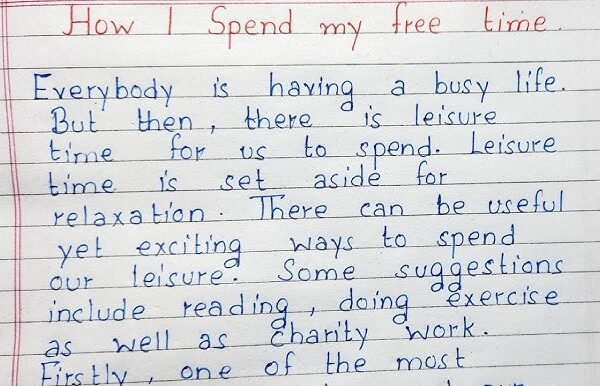 How I Spend my free time.
Everybody is having a busy life.
But then, there is leisure
time for us to spend. Leisure
time is set aside for
relaxation. There can be useful
yet exciting ways to spend
our leisure. Some suggestions
include reading, doing exercise
as well as charity work.
Firstly, one of the most